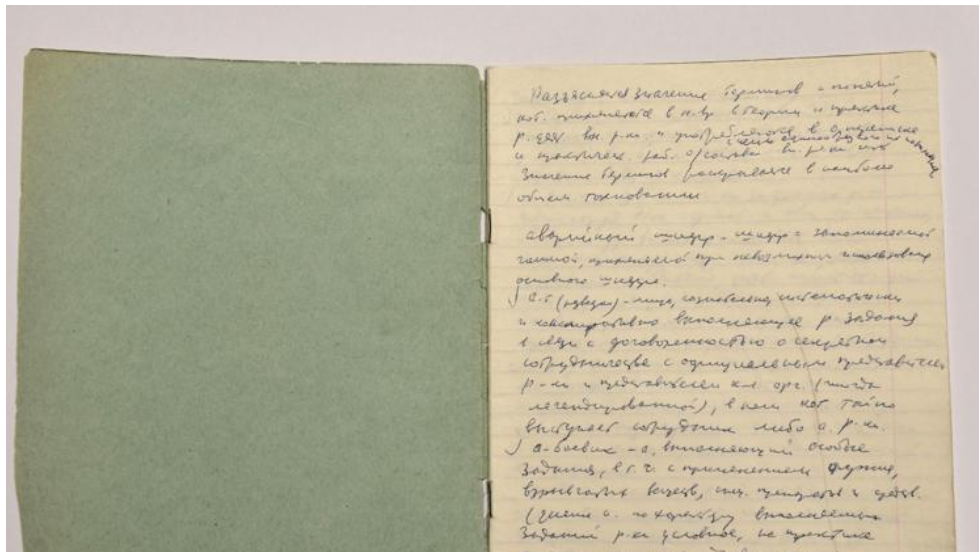 Разъясняется значение терминов и понятий,
кот. применяются в н.вр. в теории и практике
р. деят. вн. р-ки и употребляются в
и практическ. раб. вн. р-ки
Значение терминов раскрывается в наиболее
общем толковании
аварийный шифр - шифр с запоминаемой
гаммой, применяемой при невозможн. использования
основного шифра.
а-т (разведки) - лицо, сознательно, систематически
и конспиративно выполняющее р. задания
в связи с договоренностью о секретном
сотрудничестве с официальным представителем
р-ки и представителем к-л. орг. (иногда
легендированной), в кот. тайно
выступает сотрудник либо а. р-ки.
а-боевик - а, выполняющий особые
задания, в т. ч. с применением оружия,
взрывчатых веществ, спец. препаратов и средств.
(деление а. по характеру выполняемых
заданий р-ки условное, на практике